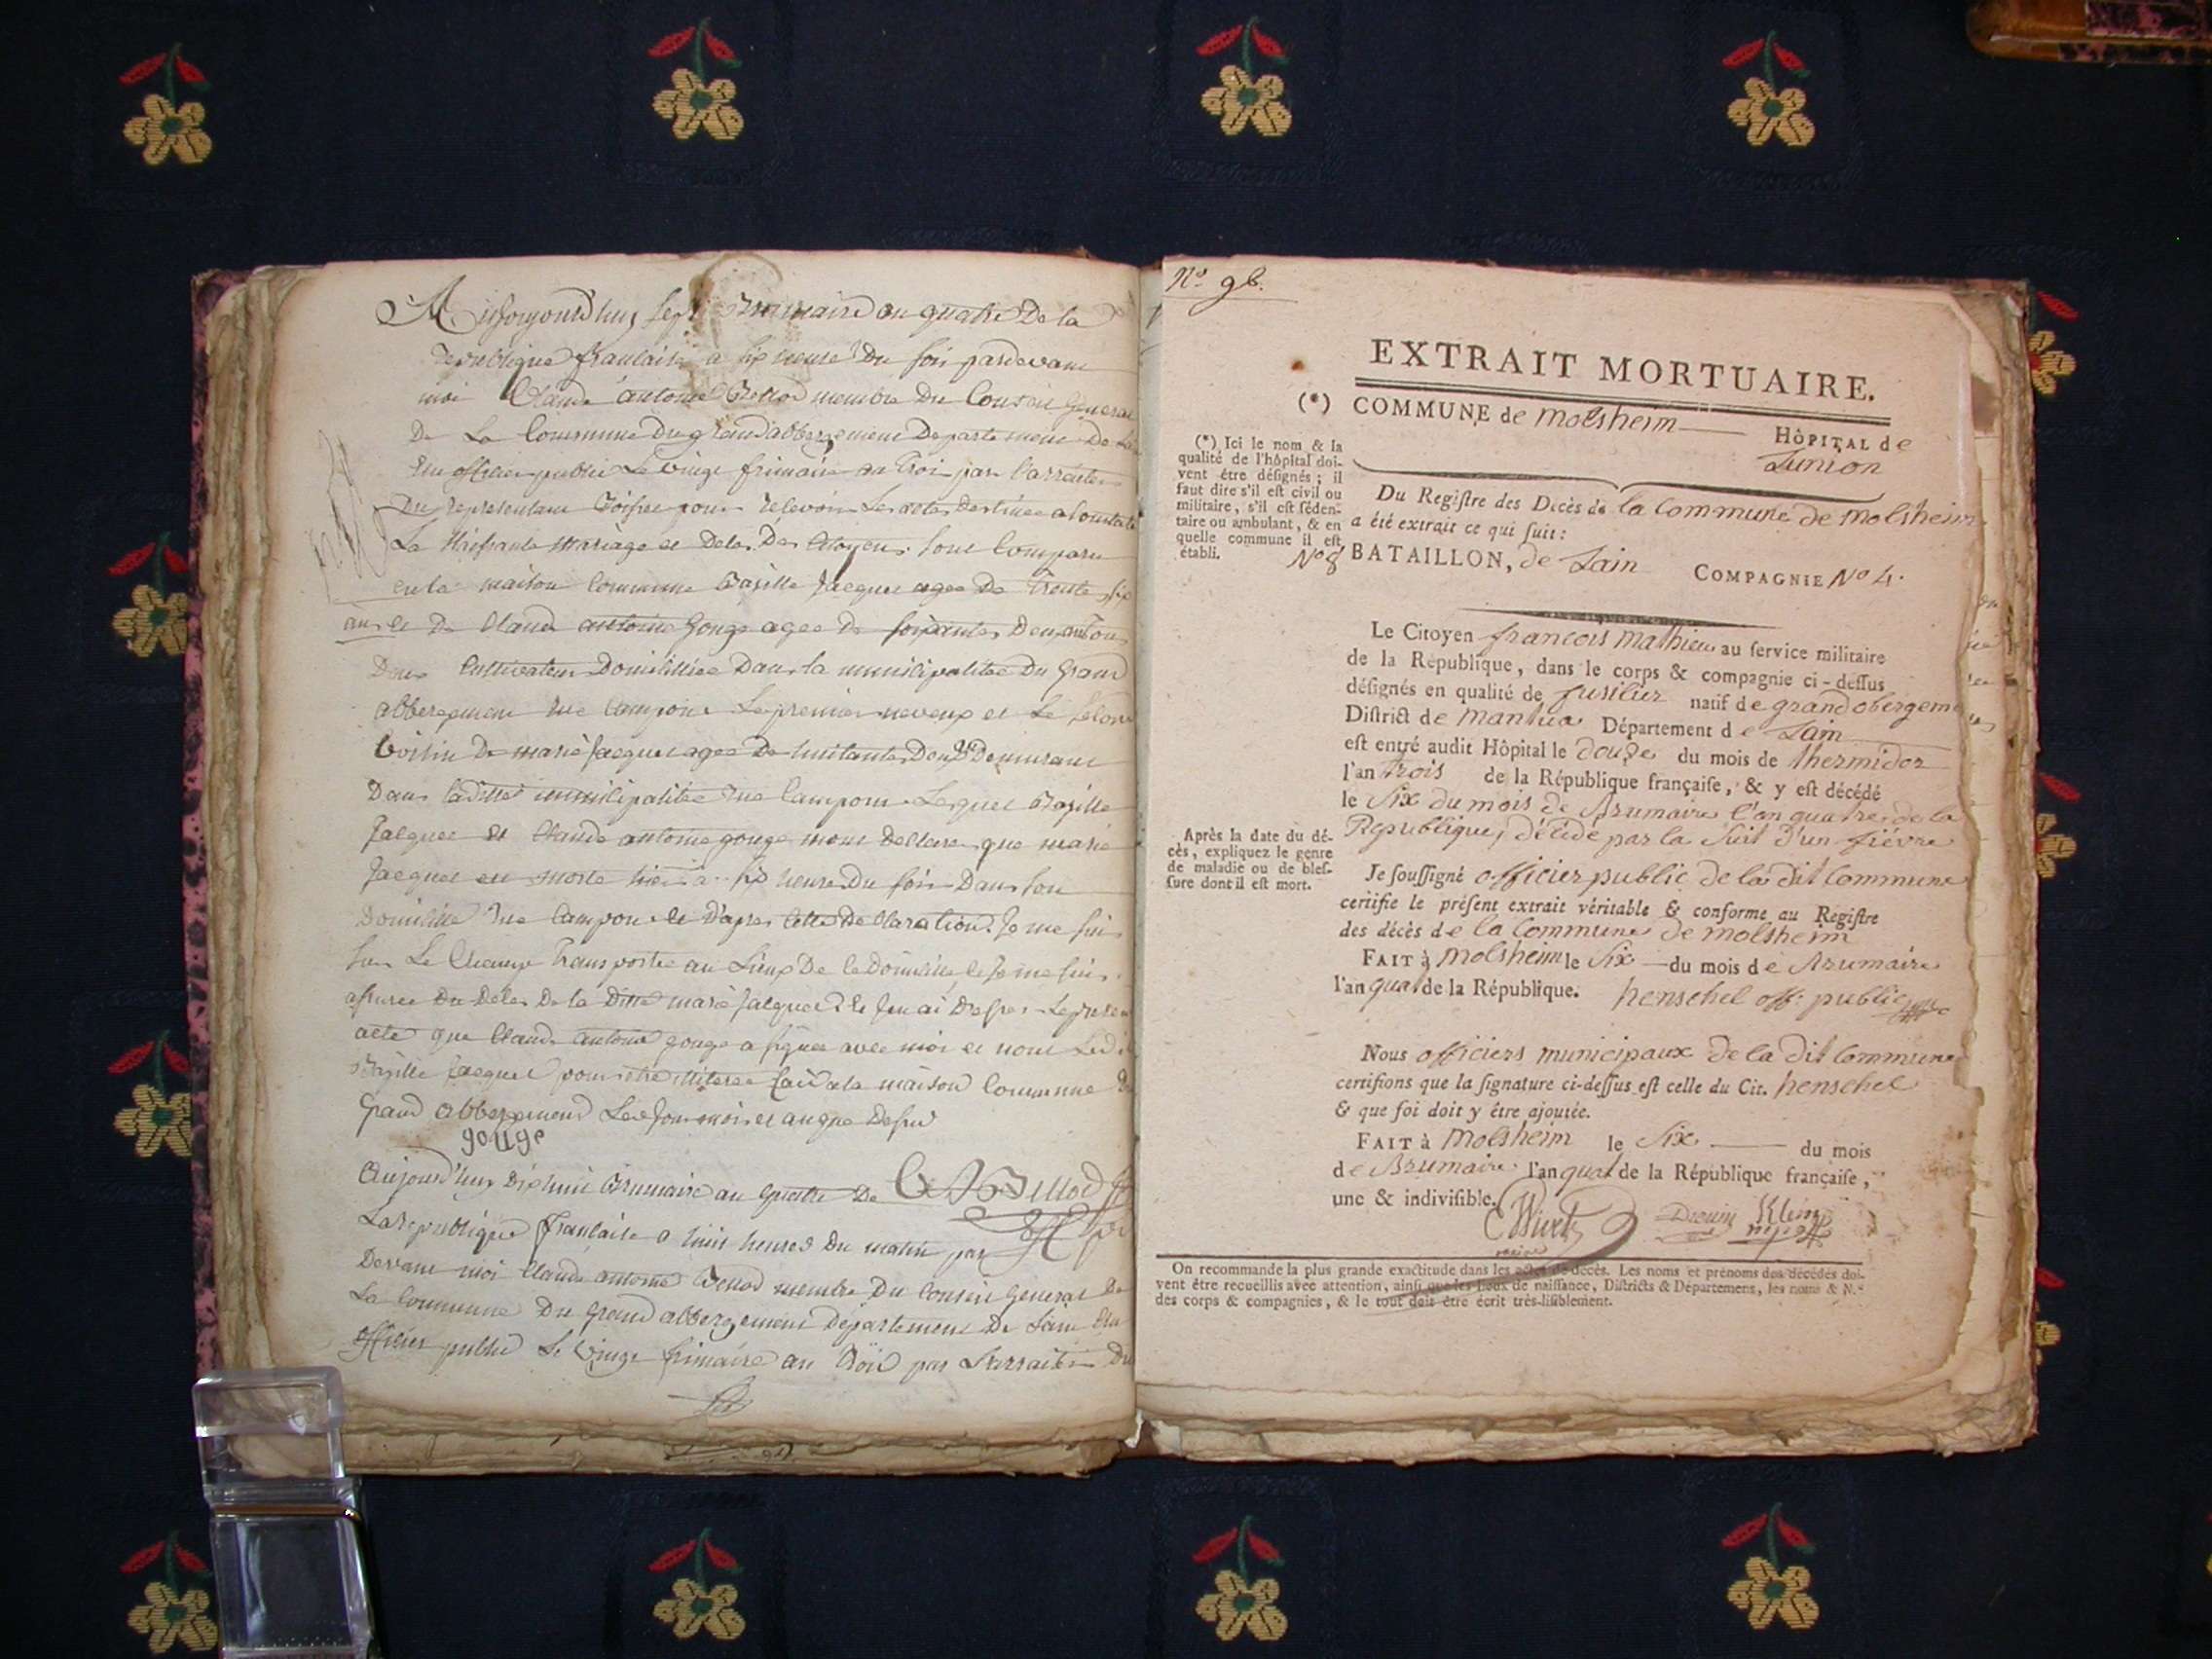 Aujourdhuy sept Brumaire an quatre De la
republique francaise a six heures Du soir pardevant
moi Claude antoine membre Du Conseil General
De La Commune Du grand abbergement Departement De
Elu officier public Le vingt frimaire an trois par l'arreter
Du representant Boisset pour recevoir Les actes Destinee a Constater
La Naissante Mariage et Deces Des Citoyens. Sont Comparu
en la maison Commune Basille Jacquet agee De trente six
ans et De Claude antoine Gouge agee De soixantes Deux ans tous
Deux Cultivateur Domicilliee Dans la municipalitee Du Grand
abbergement rue Campone Le premier neveux et Le second
Voisin De marie Jacquet agee De huitantes Deux Demeurant
Dans Laditte municipalitee rue Campone Lesquel Basille
Jacquet et Claude antoine gouge mont Declaree que marie
Jacquet est morte hier a six heures Du soir Dans son
Domicille rue Campone et D'apres Cette Declaration Je me suis
sur Le Champ transportee au Lieux De ce Domicille, et Je me suis
assuree Du Deces De la Ditte marie Jacquet et Jen ai Dresser Le present
acte que Claude antoine gouge a signee avec moi et non Ledit
Basille Jacquet pour etre illiteree fait a la maison Commune
Grand abbergement Les Jour mois et an que Dessus
gouge
Aujourd'huy Dixhuit Brumaire an quatre De
La republique francaise a huit heures Du matin par
Devant moi Claude antoine membre Du Conseil General De
La Commune Du Grand abbergement Departement De Lain Elu
officier public Le vingt frimaire an trois par Larraiter Du
N.º 96.
EXTRAIT MORTUAIRE.
(*) COMMUNE de Molsheim HÔPITAL de
Lunion
(*) Ici le nom & la
qualité de l'hôpital doi-
vent être désignés ; il
faut dire s'il est civil ou
militaire, s'il est séden-
taire ou ambulant, & en
quelle commune il est
établi.
Du Registre des Décès de la Commune de Molsheim
a été extrait ce qui suit :
Nº 8 BATAILLON, de Lain COMPAGNIE Nº 4.
Le Citoyen francois Mathieu au service militaire
de la République, dans le corps & compagnie ci-dessus
désignés en qualité de fusilier natif de grandobergem
District de Mantua Département de Lain
est entré audit Hôpital le douze du mois de thermidor
l'an trois de la République française, & y est décédé
le Six du mois de Brumaire l'an quatre de la
Republique, décide par la Suit d'un fiévre
Après la date du dé-
cès, expliquez le genre
de maladie ou de bles-
sure dont il est mort.
Je soussigné officier public de la dit Commune
certifie le présent extrait véritable & conforme au Registre
des décès de la Commune de Molsheim
FAIT à Molsheim le Six du mois de Brumaire
l'an quat de la République. henschel off. public
Nous officiers municipaux de la dit Commune
certifions que la signature ci-dessus est celle du Cit. henschel
& que foi doit y être ajoutée.
FAIT à Molsheim le Six du mois
de Brumaire l'an quat de la République française,
une & indivisible.
Drouin Klein
On recommande la plus grande exactitude dans les actes de décès. Les noms et prénoms des décédés doi-
vent être recueillis avec attention, ainsi que les lieux de naissance, Districts & Départemens, les noms & N.os
des corps & compagnies, & le tout doit être écrit très-lisiblement.